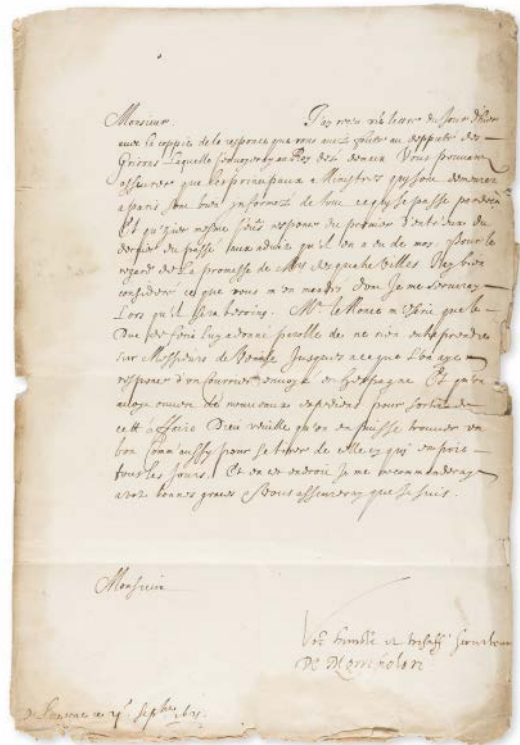 Monsieur. J'ay receu vre lettre du Jour d'hier
avec la coppie de la responce que vous avez faite au depputé des
Grisons laquelle Jenvoyeray au Roy dez demain Vous pouvant
asseurer que les principaux Ministres qui sont demeurez
a paris sont bien Informez de tout ce qui se passe par deça
Et qu'hier mesme J'eus response du premier d'entr'eux du
dernier du passé
regard de la promesse de des quatre Villes J'ay bien
consideré ce que vous m'en mandez dont Je me serviray
Lors qu'il sera besoing. Mr. le m'escrit que le
Duc de feria luy a donné parolle de ne rien entreprendre
sur Messieurs de Jusques a ce que L'on aye
response d'un Courrier envoyé en Hespagne Et qu'on
avoye ouvert de nouveaux expediens pour sortir de
cett' affaire Dieu veuille qu'on en puisse trouver un
bon Comm'aussy pour se tirer de celle cy qui empire
tous les Jours. Et en cet endroit Je me recommanderay
a voz bonnes graces Et vous asseureray que Je suis.
Monsieur
Vre humble et serviteur
De Montholon
De ce Sepbre